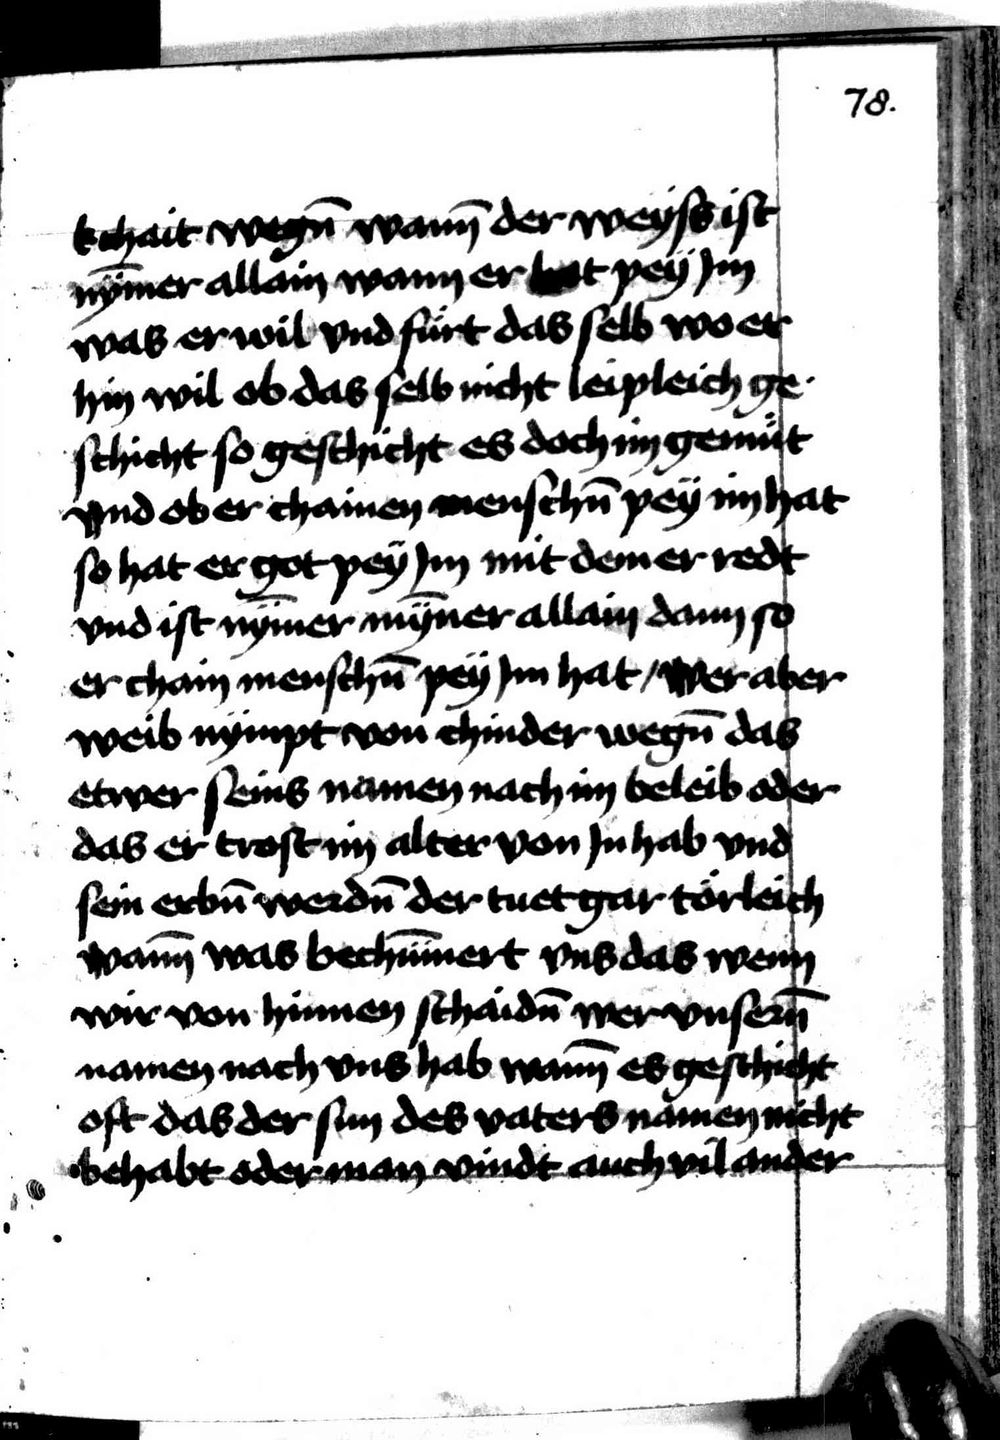 78.
kchait wegn̄ wan̄ der weyss ist
nym̄er allain wann er hat peÿ Jm
was er wil vnd fürt das selb wo er
hin wil ob das selb nicht leipleich ge-
schicht so geschicht es doch im gemüt
vnd ob er chainen menschn̄ peÿ im hat
so hat er got peÿ Jm mit dem er redt
vnd ist nym̄er myn̄er allain dann so
er chain menschn̄ peÿ Jm hat / Wer aber
weib nÿmpt von chinder wegn̄ das
etwer seins namen nach im beleib oder
das er trost im alter von Jn hab vnd
sein erbn̄ werdn̄ der tuet gar törleich
wan̄ was bechüm̄ert vns das wenn
wir von hinnen schaidn̄ wer vnsern̄
namen nach vns hab wan̄ es geschicht
oft das der sun des vaters namen nicht
behabt oder man vindt auch vil ander